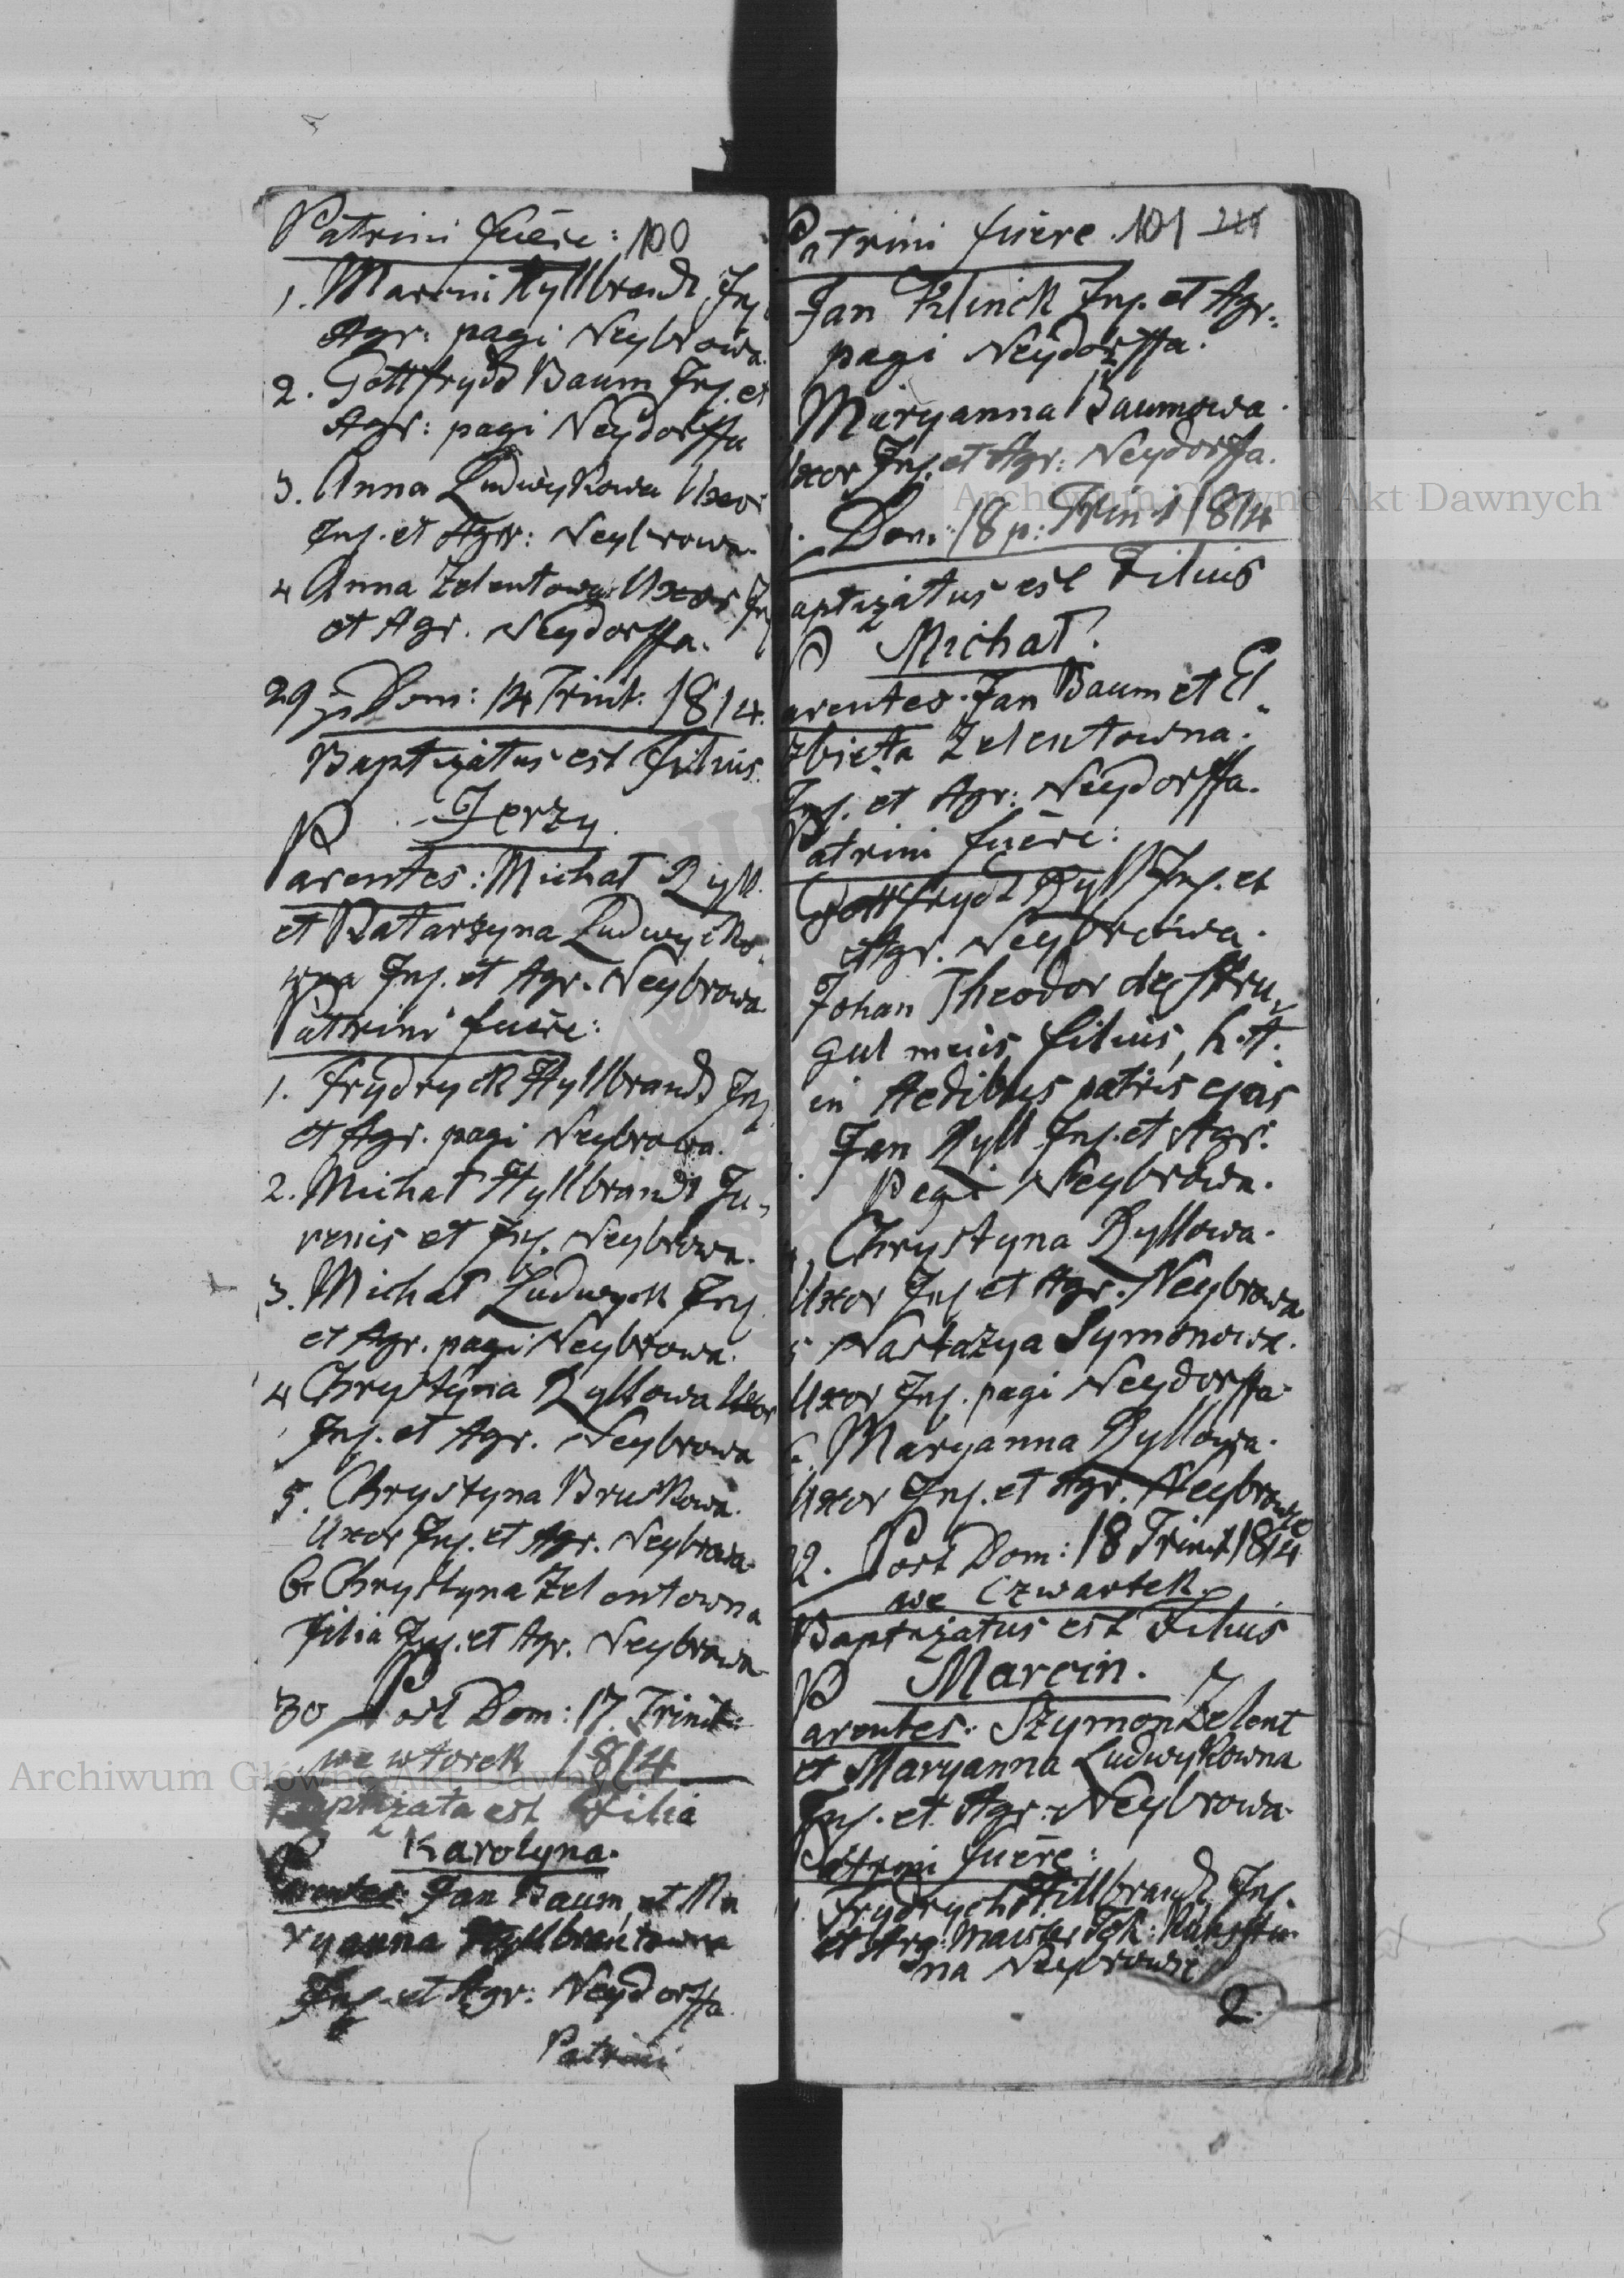 Patrini fuere: 100
1. Marcin Hyllbrandt Inq.
Agr: pagi Neybrowa.
2. Gottfrydt Baum Inq. et
Agr: pagi Neydorffa
3. Anna Ludwykowa Uxor
Inq. et Agr: Neybrowa.
4 Anna Zelentowa Uxor Inq
et Agr. Neydorffa.
29 p Dom: 14 Trinit: 1814.
Baptizatus est Filius
Jerzy.
Parentes: Michał Ryll
et Katarzyna Ludwyko-
wna Inq. et Agr. Neybrowa.
Patrini fuere:
1. Frydryck Hyllbrandt Inq
et Agr. pagi Neybrowa.
2. Michał Hyllbrandt Ju-
venis et Inq. Neybrowa.
3. Michał Ludwyck Inq
et Agr. pagi Neybrowa.
4 Chrystyna Ryllowa Uxor
Inq. et Agr. Neybrowa
5. Chrystyna Bruskowa.
Uxor Inq. et Agr. Neybrowa.
6. Chrystyna Zelentowna
Filia Inq. et Agr. Neybrowa
30 Post Dom: 17. Trinit:
we wtorek 1814
Baptizata est Filia
Karolyna.
Parentes Jan Baum, et Ma
ryanna Hyllbrantowna
Inq. et Agr: Neydorffa
Patrini
Patrini fuere. 101
Jan Klinck Inq. et Agr.
pagi Neydorffa.
Maryanna Baumowa.
Uxor Inq. et Agr: Neydorffa.
Dom: 18 p: Trinit 1814
aptizatus est Filius
Michał.
Parentes. Jan Baum et El-
zbieta Zelentowna.
Inq. et Agr: Neydorffa.
Patrini fuere:
Gottfrydt Ryll Inq. et
Agr. Neybrowa.
Johan Theodor
gul meus filius, h.t.
in Aedibus patris ejus
Jan Ryll Inq. et Agr.
Pagi Neybrowa.
4. Chrystyna Ryllowa.
Uxor Inq et Agr. Neybrowa
5 Nastazya Symonowa.
Uxor Inq. pagi Neydorffa
6. Maryanna Ryllowa.
Uxor Inq. et Agr. Neybrowa
2. Post Dom: 18 Trinit 1814
we Czwartek.
Baptizatus est Filius
Marcin.
Parentes. Szymon Zelent
et Maryanna Ludwykowna
Inq. et Agr: Neybrowa
Patrini fuere:
1. Frydrych Hillbrandt Inq.
et
na Neybrowie
2.
Archiwum Główne Akt Dawnych
Archiwum Główne Akt Dawnych